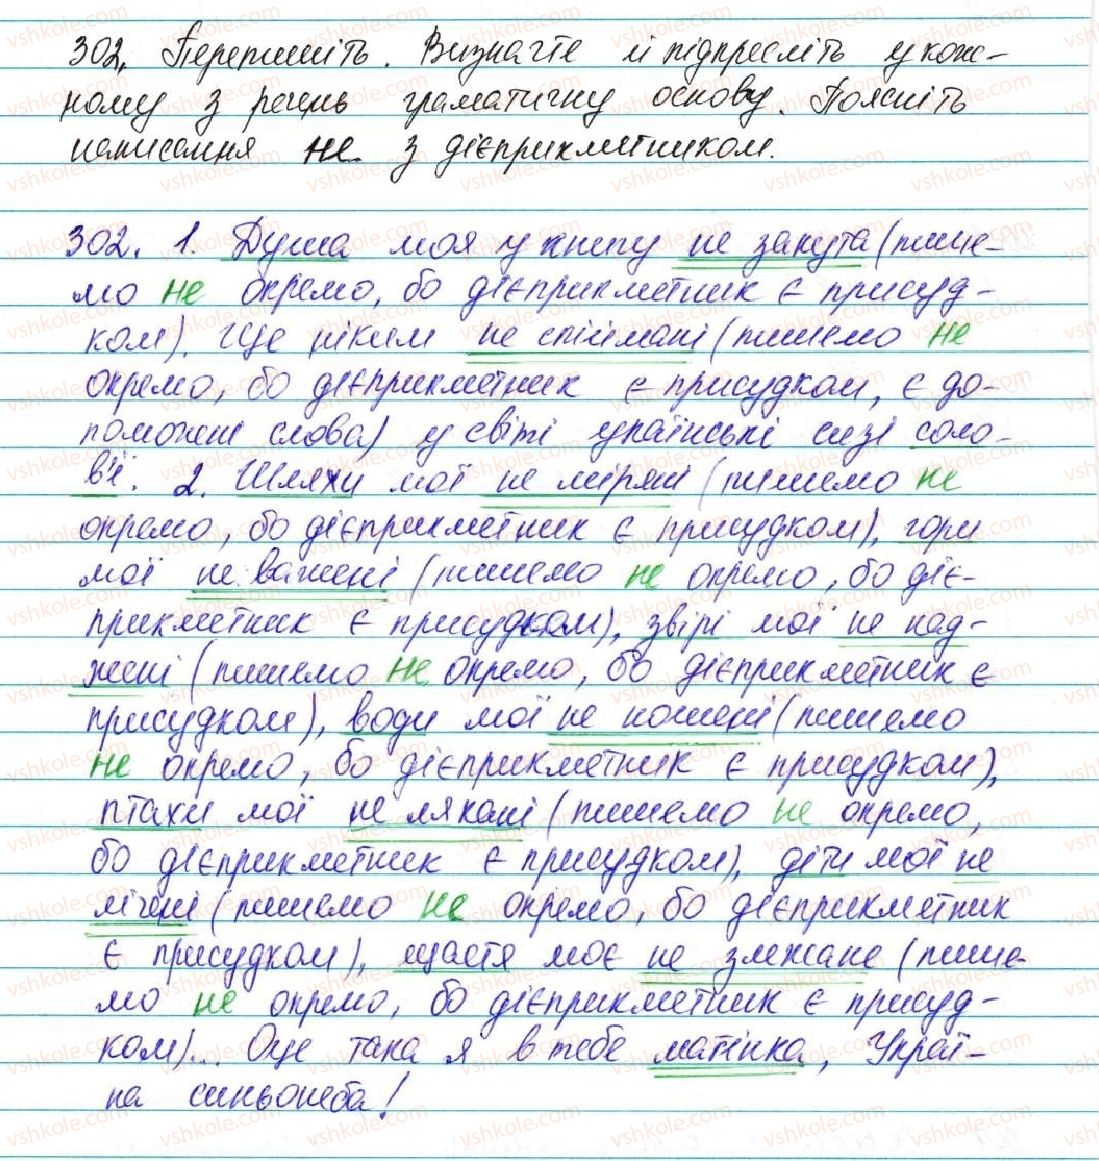 302. Перепишіть. Визначте й підкресліть у кож-
ному з речень граматичну основу. Поясніть
написання не з дієприкметником.
302. 1. Душа моя у книгу не закута (пише-
мо не окремо, бо дієприкметник є присуд-
ком). Ще ніким не спіймані (пишемо не
окремо, бо дієприкметник є присудком, є до-
поможні слова) у світі українські сизі соло-
в'ї. 2. Шляхи мої не міряні (пишемо не
окремо, бо дієприкметник є присудком), гори
мої не важені (пишемо не окремо, бо діє-
прикметник є присудком), звірі мої не над-
жені (пишемо не окремо, бо дієприкметник є
присудком), води мої не ношені (пишемо
не окремо, бо дієприкметник є присудком),
птахи мої не лякані (пишемо не окремо,
бо дієприкметник є присудком), діти мої не
лічені (пишемо не окремо, бо дієприкметник
є присудком), щастя моє не злежане (пише-
мо не окремо, бо дієприкметник є присуд-
ком)... Оце така я в тебе матінка, Украї-
на синьонеба!